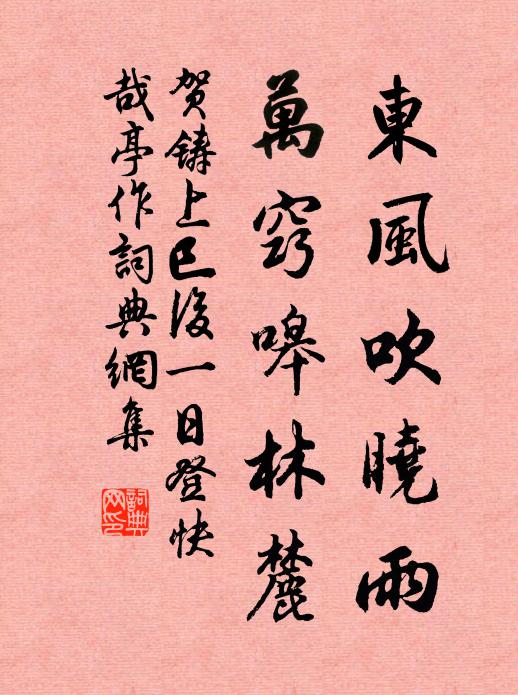 東風吹曉雨
萬竅嘷林麓
贺鑄上巳後一日登快
哉亭作詞典網集
詞典
网印